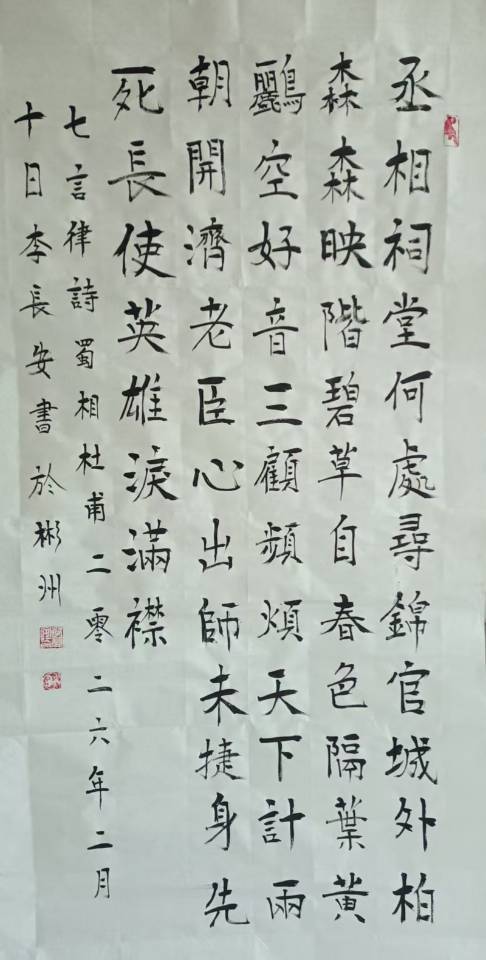 丞相祠堂何處尋錦官城外柏
森森映階碧草自春色隔葉黄
鸝空好音三顧頻煩天下計兩
朝開濟老臣心出師未捷身先
死長使英雄淚滿襟
七言律詩蜀相杜甫二零二六年二月
十日李長安書於彬州